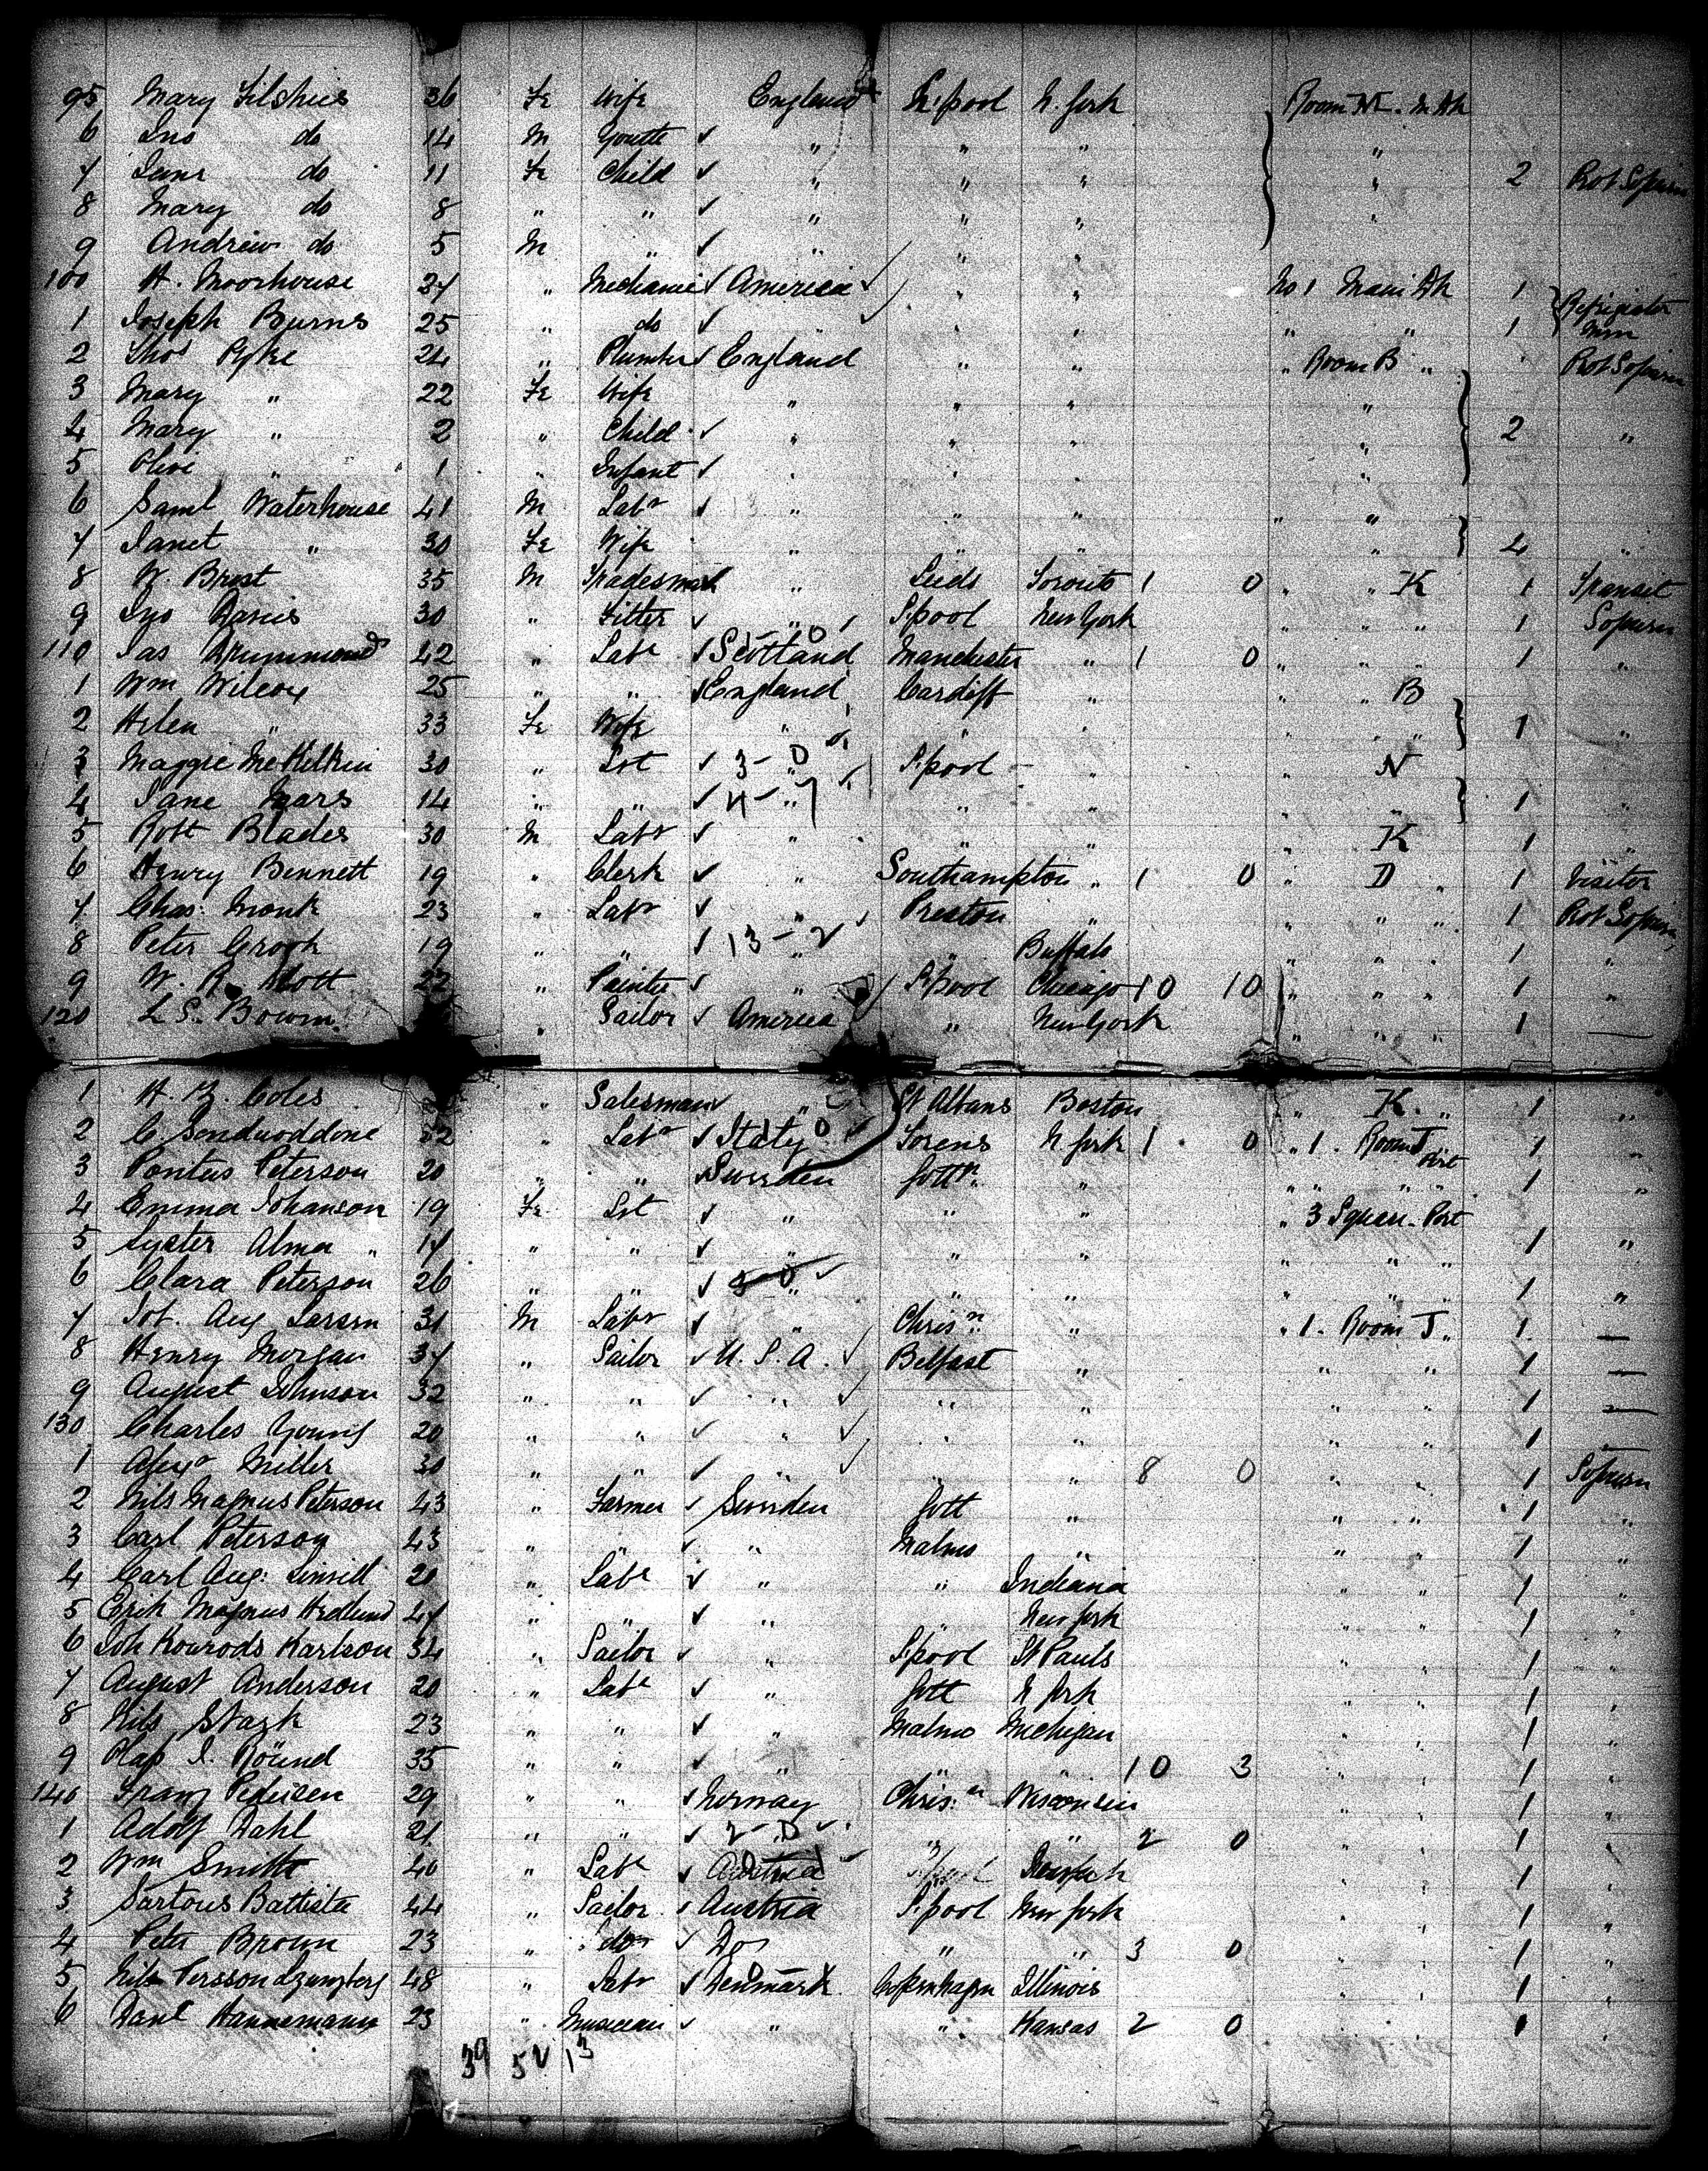 95 Mary Filshies 36 Fe Wife England L'pool N. York Room N.
6 Jno do 14 M Youth ✓ " " " "
7 Jane do 11 Fe Child ✓ " " " " 2
8 Mary do 8 " " ✓ " " " "
9 Andrew do 5 M " ✓ " " "
100 H. Moorhouse 27 " Mechanic ✓ America ✓ " " No 1 Main Dk 1 Refrigerator
1 Joseph Burns 25 " do ✓ " " " " 1 Men
2 Thos Pyke 24 " Plumber ✓ England " " " Room B "
3 Mary " 22 Fe Wife " " " "
4 Mary " 2 " Child ✓ " " " " 2 "
5 Olive " 1 " Infant ✓ " " " "
6 Saml Waterhouse 41 M Labr ✓ " " " " "
7 Janet " 30 Fe Wife " " " " 2 "
8 W. Brust 35 M Tradesman ✓ " Leeds Toronto 1 0 " " K 1 Transit
9 Jno Davies 30 " Fitter ✓ " L'pool New York " " " 1 Sojourn
110 Jas Drummond 42 " Labr ✓ Scotland Manchester " 1 0 " " " 1 "
1 Wm Wilcox 25 " " ✓ England Cardiff " " " B
2 Helen " 33 Fe Wife " " " " " 1 "
3 Maggie McKilkin 30 " Spt ✓ 3-0 L'pool " " N
4 Jane Mars 14 " " ✓ 4-7 " " " 1 "
5 Robt Blades 30 M Labr ✓ " " " " K 1 "
6 Henry Bennett 19 " Clerk ✓ " Southampton " 1 0 " D " 1 Visitor
7 Chas. Monk 23 " Labr ✓ " Preston " " " " 1
8 Peter Crook 19 " " ✓ 13-2 " Buffalo " " " 1 "
9 W. R. Mott 22 " Painter ✓ " L'pool Chicago 10 10 " " " 1 "
120 L. S. Bowm " Sailor ✓ America " New York " " " 1 —
1 H. B. Coles " Salesman ✓ " St Albans Boston " K. " 1 "
2 C 32 " Labr ✓ Italy N York 1 0 " 1. Room T Port 1 "
3 Pontus Peterson 20 " " ✓ Sweden Gottn " " " " " 1 "
4 Emma Johanson 19 Fe Spt ✓ " " " " 3 Square. Port
5 Syster Alma " 17 " " ✓ " " " " " " 1 "
6 Clara Peterson 26 " " ✓ " " " " " " 1 "
7 Joh. Aug Larsen 31 M Labr ✓ " Chrisn " " 1. Room T. " 1 —
8 Henry Morgan 37 " Sailor ✓ U.S.A. ✓ Belfast " " " 1 —
9 August Johnson 32 " " ✓ " ✓ " " " " 1 —
130 Charles Young 20 " " ✓ " ✓ " " " " 1 —
1 Miller 30 " " ✓ " ✓ " " 8 0 " " 1 Sojourn
2 Nils Magnus Peterson 43 " Farmer ✓ Sweden Gott " " " 1 "
3 Carl Peterson 43 " " ✓ " Malmo " " " 1 "
4 Carl Aug: Linsell 20 " Labr ✓ " " Indiana " " 1 "
5 Erik Magnus Hedlund 47 " " ✓ " " New York " " 1 "
6 Joh Konrods Karlson 34 " Sailor ✓ " L'pool St Pauls " " 1 "
7 August Anderson 20 " Labr ✓ " Gott N York " " 1 "
8 Nils Stark 23 " " ✓ " Malmo Michigan " " 1 "
9 Olaf J. Röund 35 " " ✓ " " " 10 3 " " 1 "
140 Franz Pedersen 29 " " ✓ Norway Chrisn Wisconsin " " 1 "
1 Adolf Dahl 21 " " ✓ 2-0 ✓ " " 2 0 " " 1 "
2 Wm Smitht 40 " Labr ✓ Austria New York " " 1 "
3 Sartous Battista 44 " Sailor ✓ Austria L'pool New York " " 1 "
4 Peter Brown 23 " do ✓ Do " " 3 0 " " 1 "
5 Nils Persson 48 " Labr ✓ Denmark Copenhagen Illinois " " 1 "
6 Danl Hannemann 23 " Musician ✓ " " Kansas 2 0 " " 1 "
39 52 13